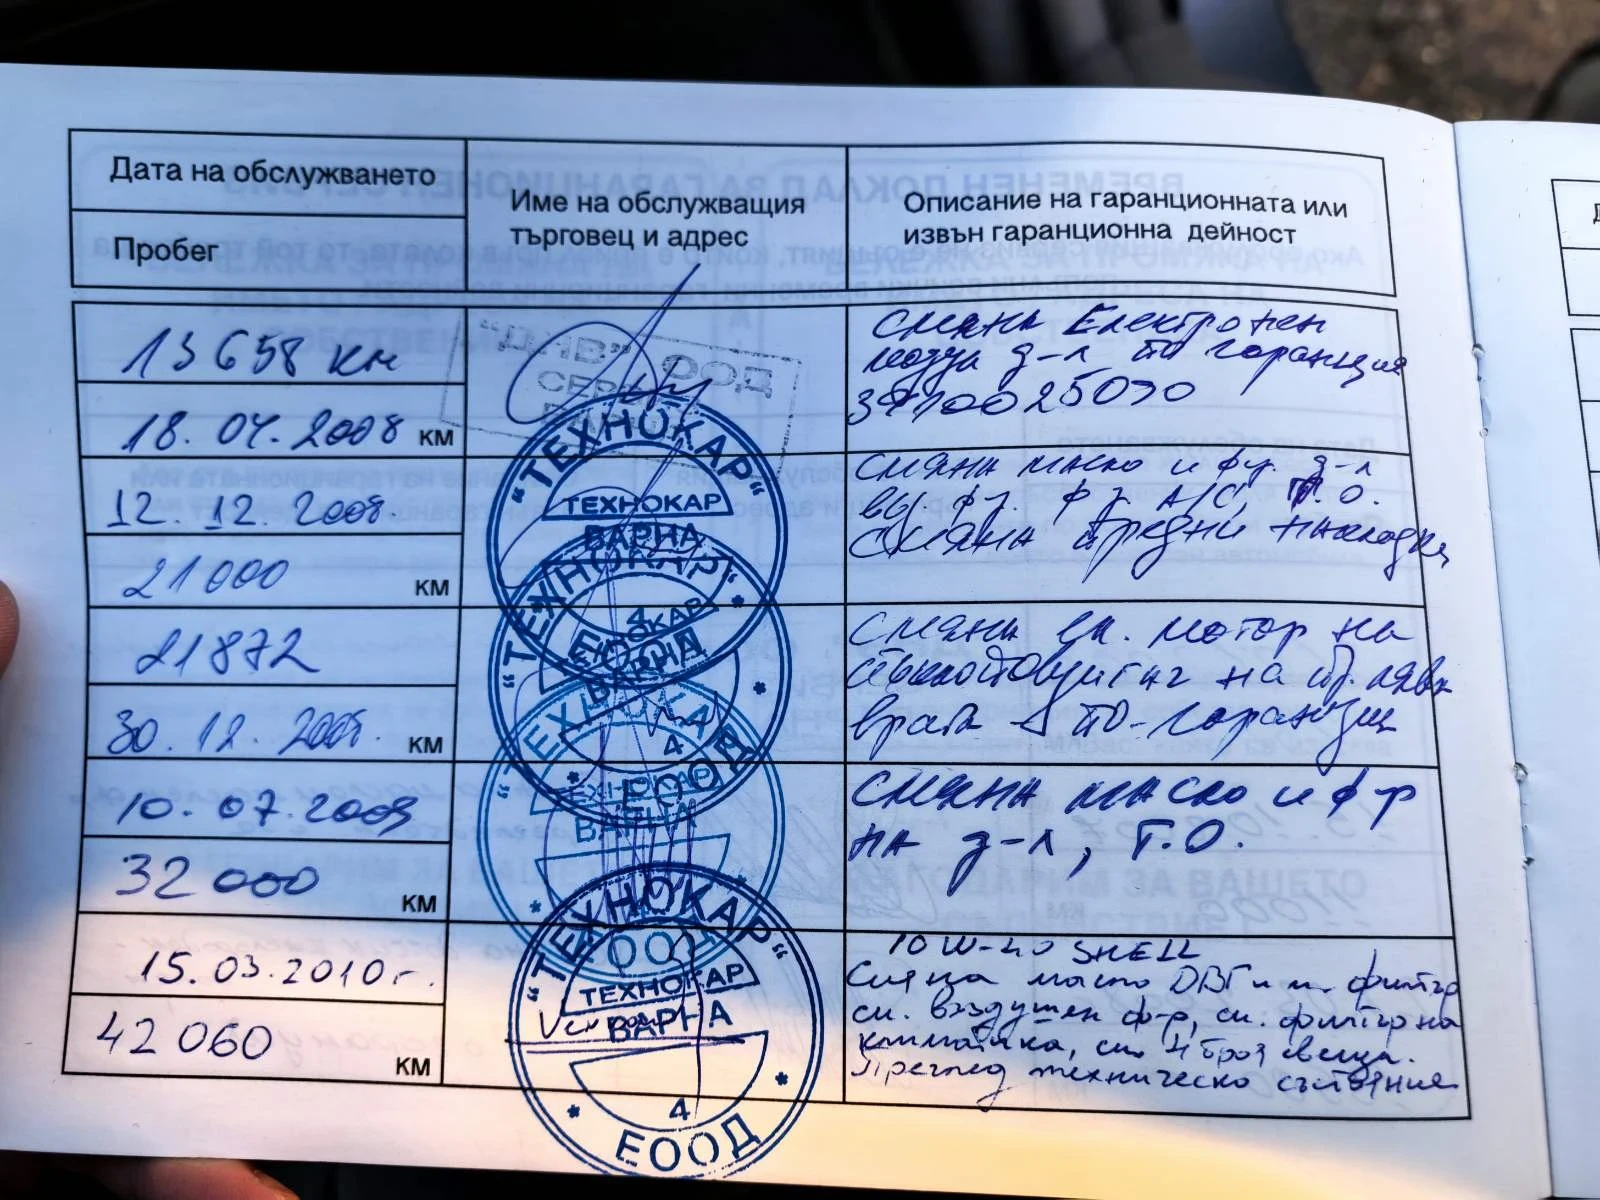 Дата на обслужването
Пробег
Име на обслужващия
търговец и адрес
Описание на гаранционната или
извън гаранционна дейност
13658 км
18.04.2008 км
"ДНВ" ООД
смяна Електронен
модул д-л по гаранция
3910025070
12.12.2008
21000 км
"ТЕХНОКАР"
ТЕХНОКАР
ВАРНА
4
ЕООД
смяна масло и ф-р д-л
въз. ф-р, ф-р A/C, Т.О.
смяна предни накладки
21872
30.12.2008. км
"ТЕХНОКАР"
ТЕХНОКАР
ВАРНА
4
ЕООД
смяна ел. мотор на
стъклоповдигач на пр. лява
врата по гаранция
10.07.2009
32000 км
"ТЕХНОКАР"
ТЕХНОКАР
ВАРНА
ЕООД
смяна масло и ф-р
на д-л, Т.О.
15.03.2010 г.
42060 км
"ТЕХНОКАР"
ТЕХНОКАР
ВАРНА
4
ЕООД
10W-40 SHELL
Смяна масло ДВГ и м. филтър
см. въздушен ф-р, см. филтър на
климатика, см. 4 броя свещи.
Преглед техническо състояние